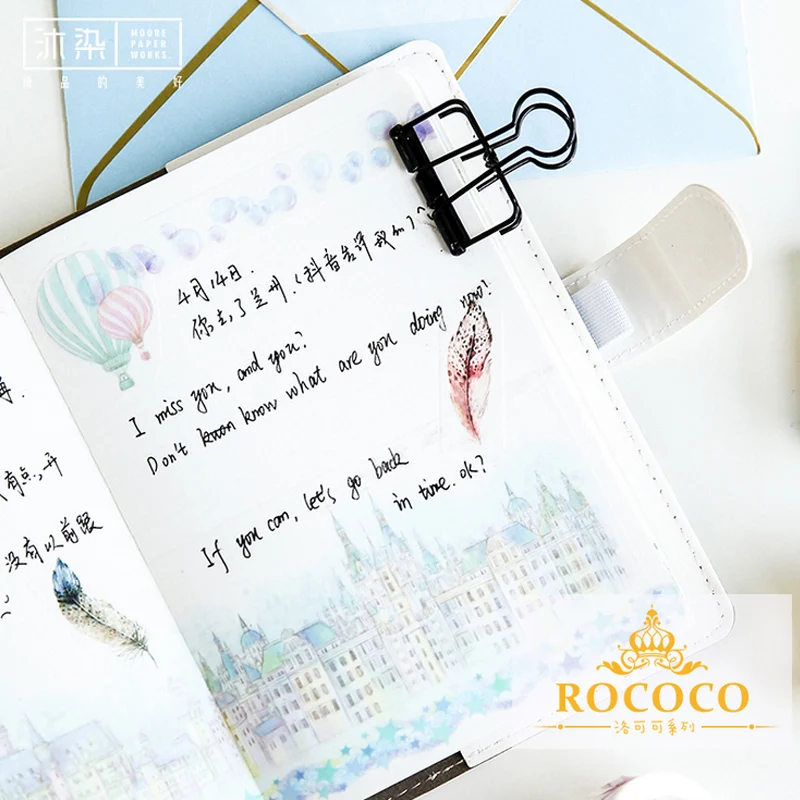 沐染
MOORE
PAPER
WORKS.
纸品的美好
4月14日.
你去了兰州.(抖音告诉我的)~
I miss you, and you?
Don't know what are you doing now?
If you can, let's go back
in time. ok?
有点,开
没有以前跟
ROCOCO
洛可可系列